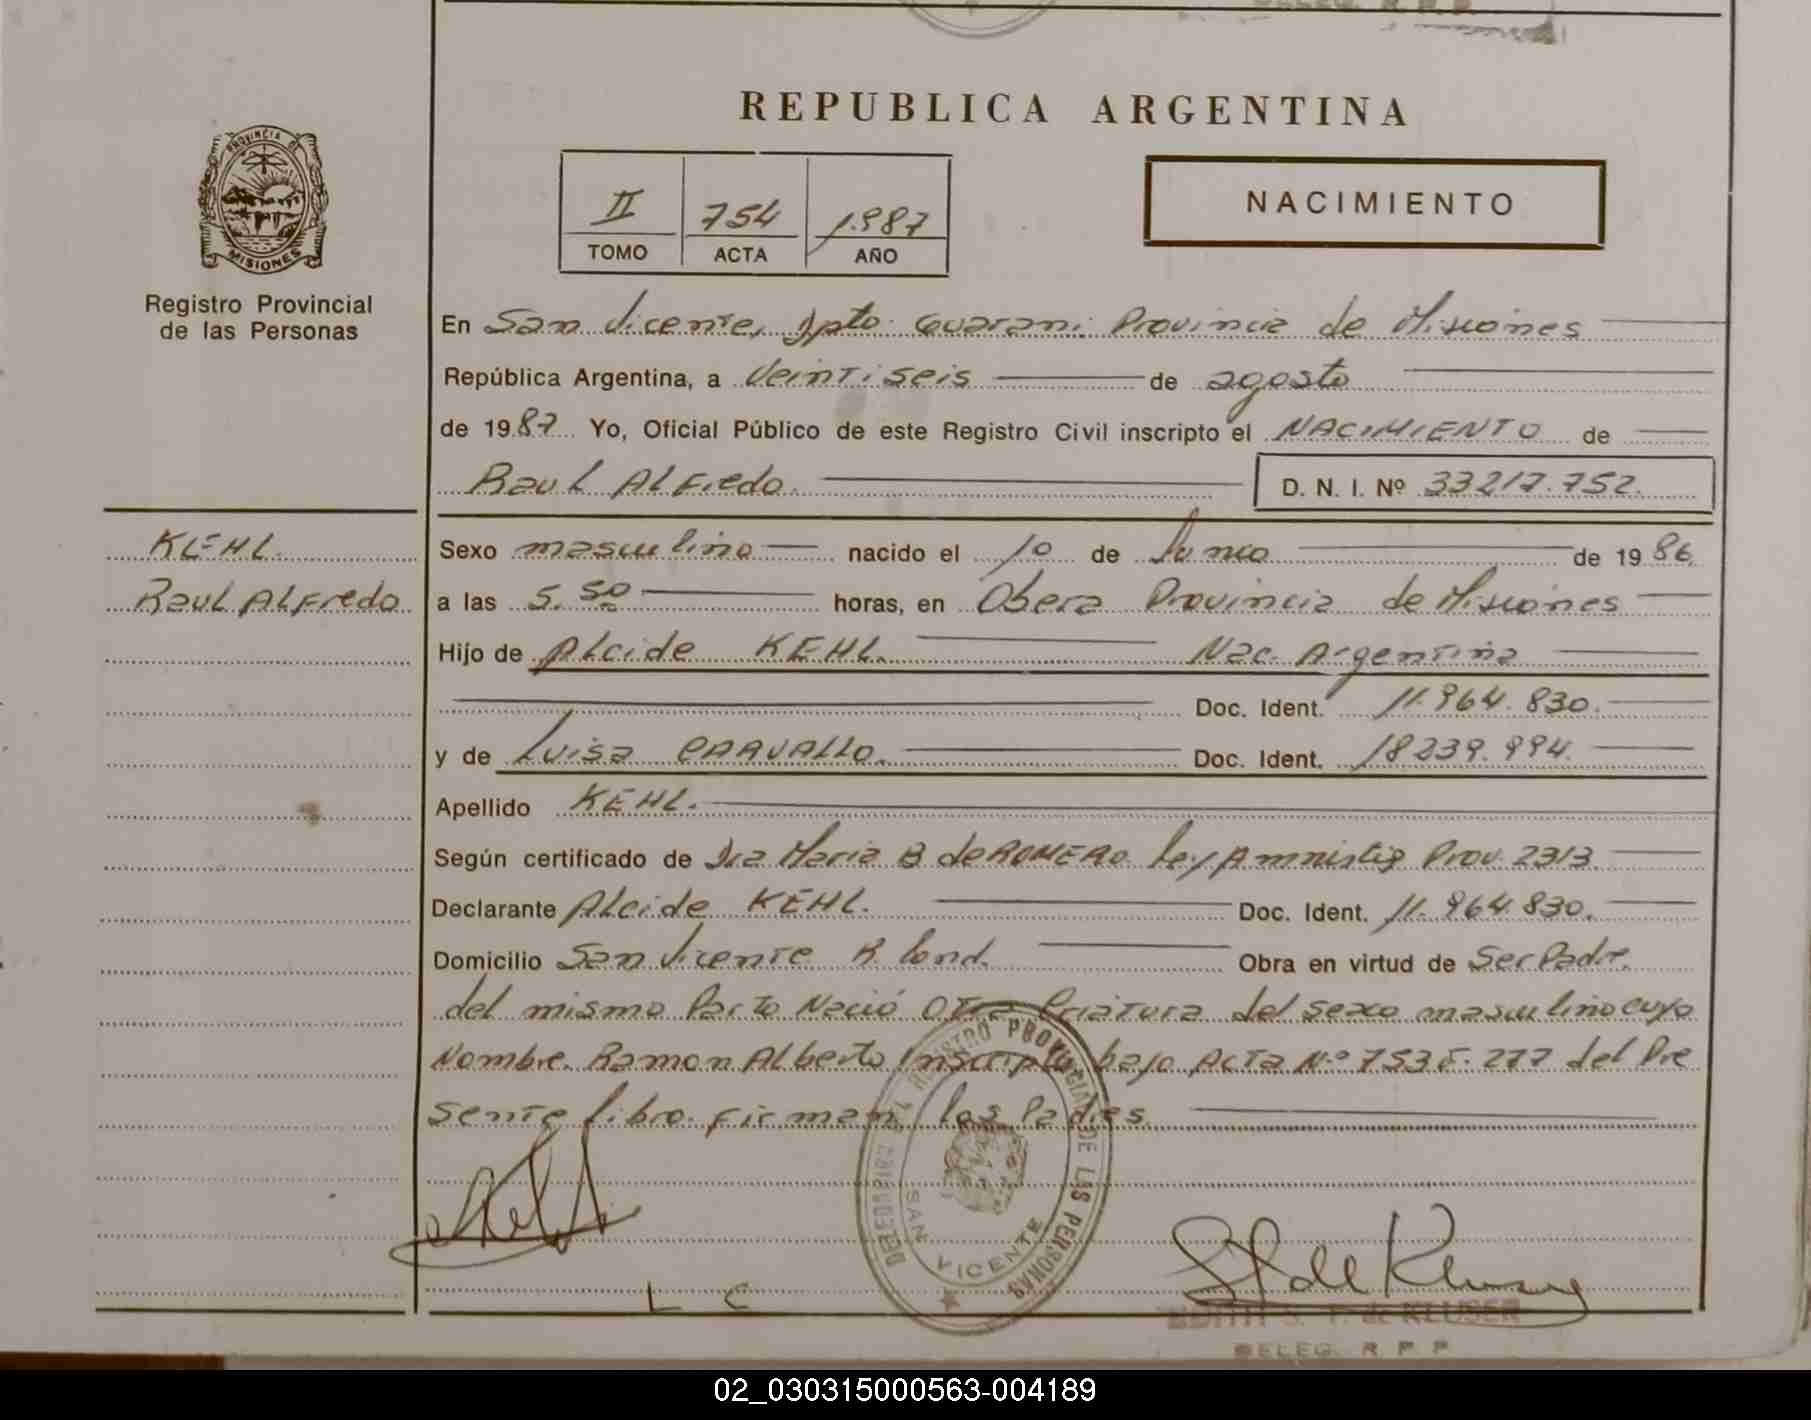 REPUBLICA ARGENTINA
PROVINCIA DE
MISIONES
Registro Provincial
de las Personas
II 754 1.987
TOMO ACTA AÑO
NACIMIENTO
En San Vicente, Dpto. Guarani Provincia de Misiones
República Argentina, a Veintiseis de agosto
de 1987 Yo, Oficial Público de este Registro Civil inscripto el NACIMIENTO de
Raul Alfredo. D. N. I. Nº 33217.752.
KEHL.
Raul Alfredo
Sexo masculino nacido el 10 de Junio de 1986
a las 5.50 horas, en Obera Provincia de Misiones
Hijo de Alcide KEHL. Nac. Argentina
Doc. Ident. 11.964.830.
y de Luisa CARVALLO. Doc. Ident. 18239.994.
Apellido KEHL.
Según certificado de Dra Maria B de ROMERO ley Amnistia Prov. 2313
Declarante Alcide KEHL. Doc. Ident. 11.964.830.
Domicilio San Vicente R. Cond. Obra en virtud de Ser Padre.
del mismo Parto Nació Otra Criatura del sexo masculino cuyo
Nombre. Ramon Alberto Inscripto bajo Acta Nº 753 F. 277 del Pre
sente libro. firman los Padres.
DELEGACION DEL REGISTRO PROVINCIAL DE LAS PERSONAS
SAN VICENTE
L C
EDITH S. F. de KLUSER
DELEG. R. P. P.
02_030315000563-004189